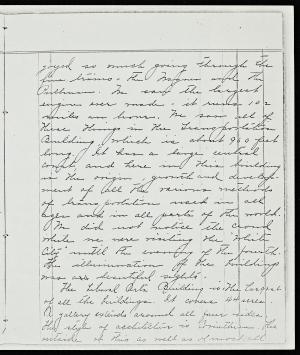 joyed so much going through the
fine trains - the Wagner and the
Pullman. We saw the largest
engine ever made - it runs 102
miles an hour. We saw all of
these things in the Transportation
Building which is about 960 feet
long. It has a large central
court and here in this building
is the origin, growth and develop-
ment of all the various methods
of transportation used in all
ages and in all parts of the world.
We did not notice the crowd
while we were visiting the "White
City" until the evening of the fourth.
The illumination of the buildings
was a beautiful sight.
The Liberal Arts Building is the largest
of all the buildings. It covers 44 acres.
A gallery extends around all four sides.
The style of architecture is Corinthian. The
outside in this as well as almost all